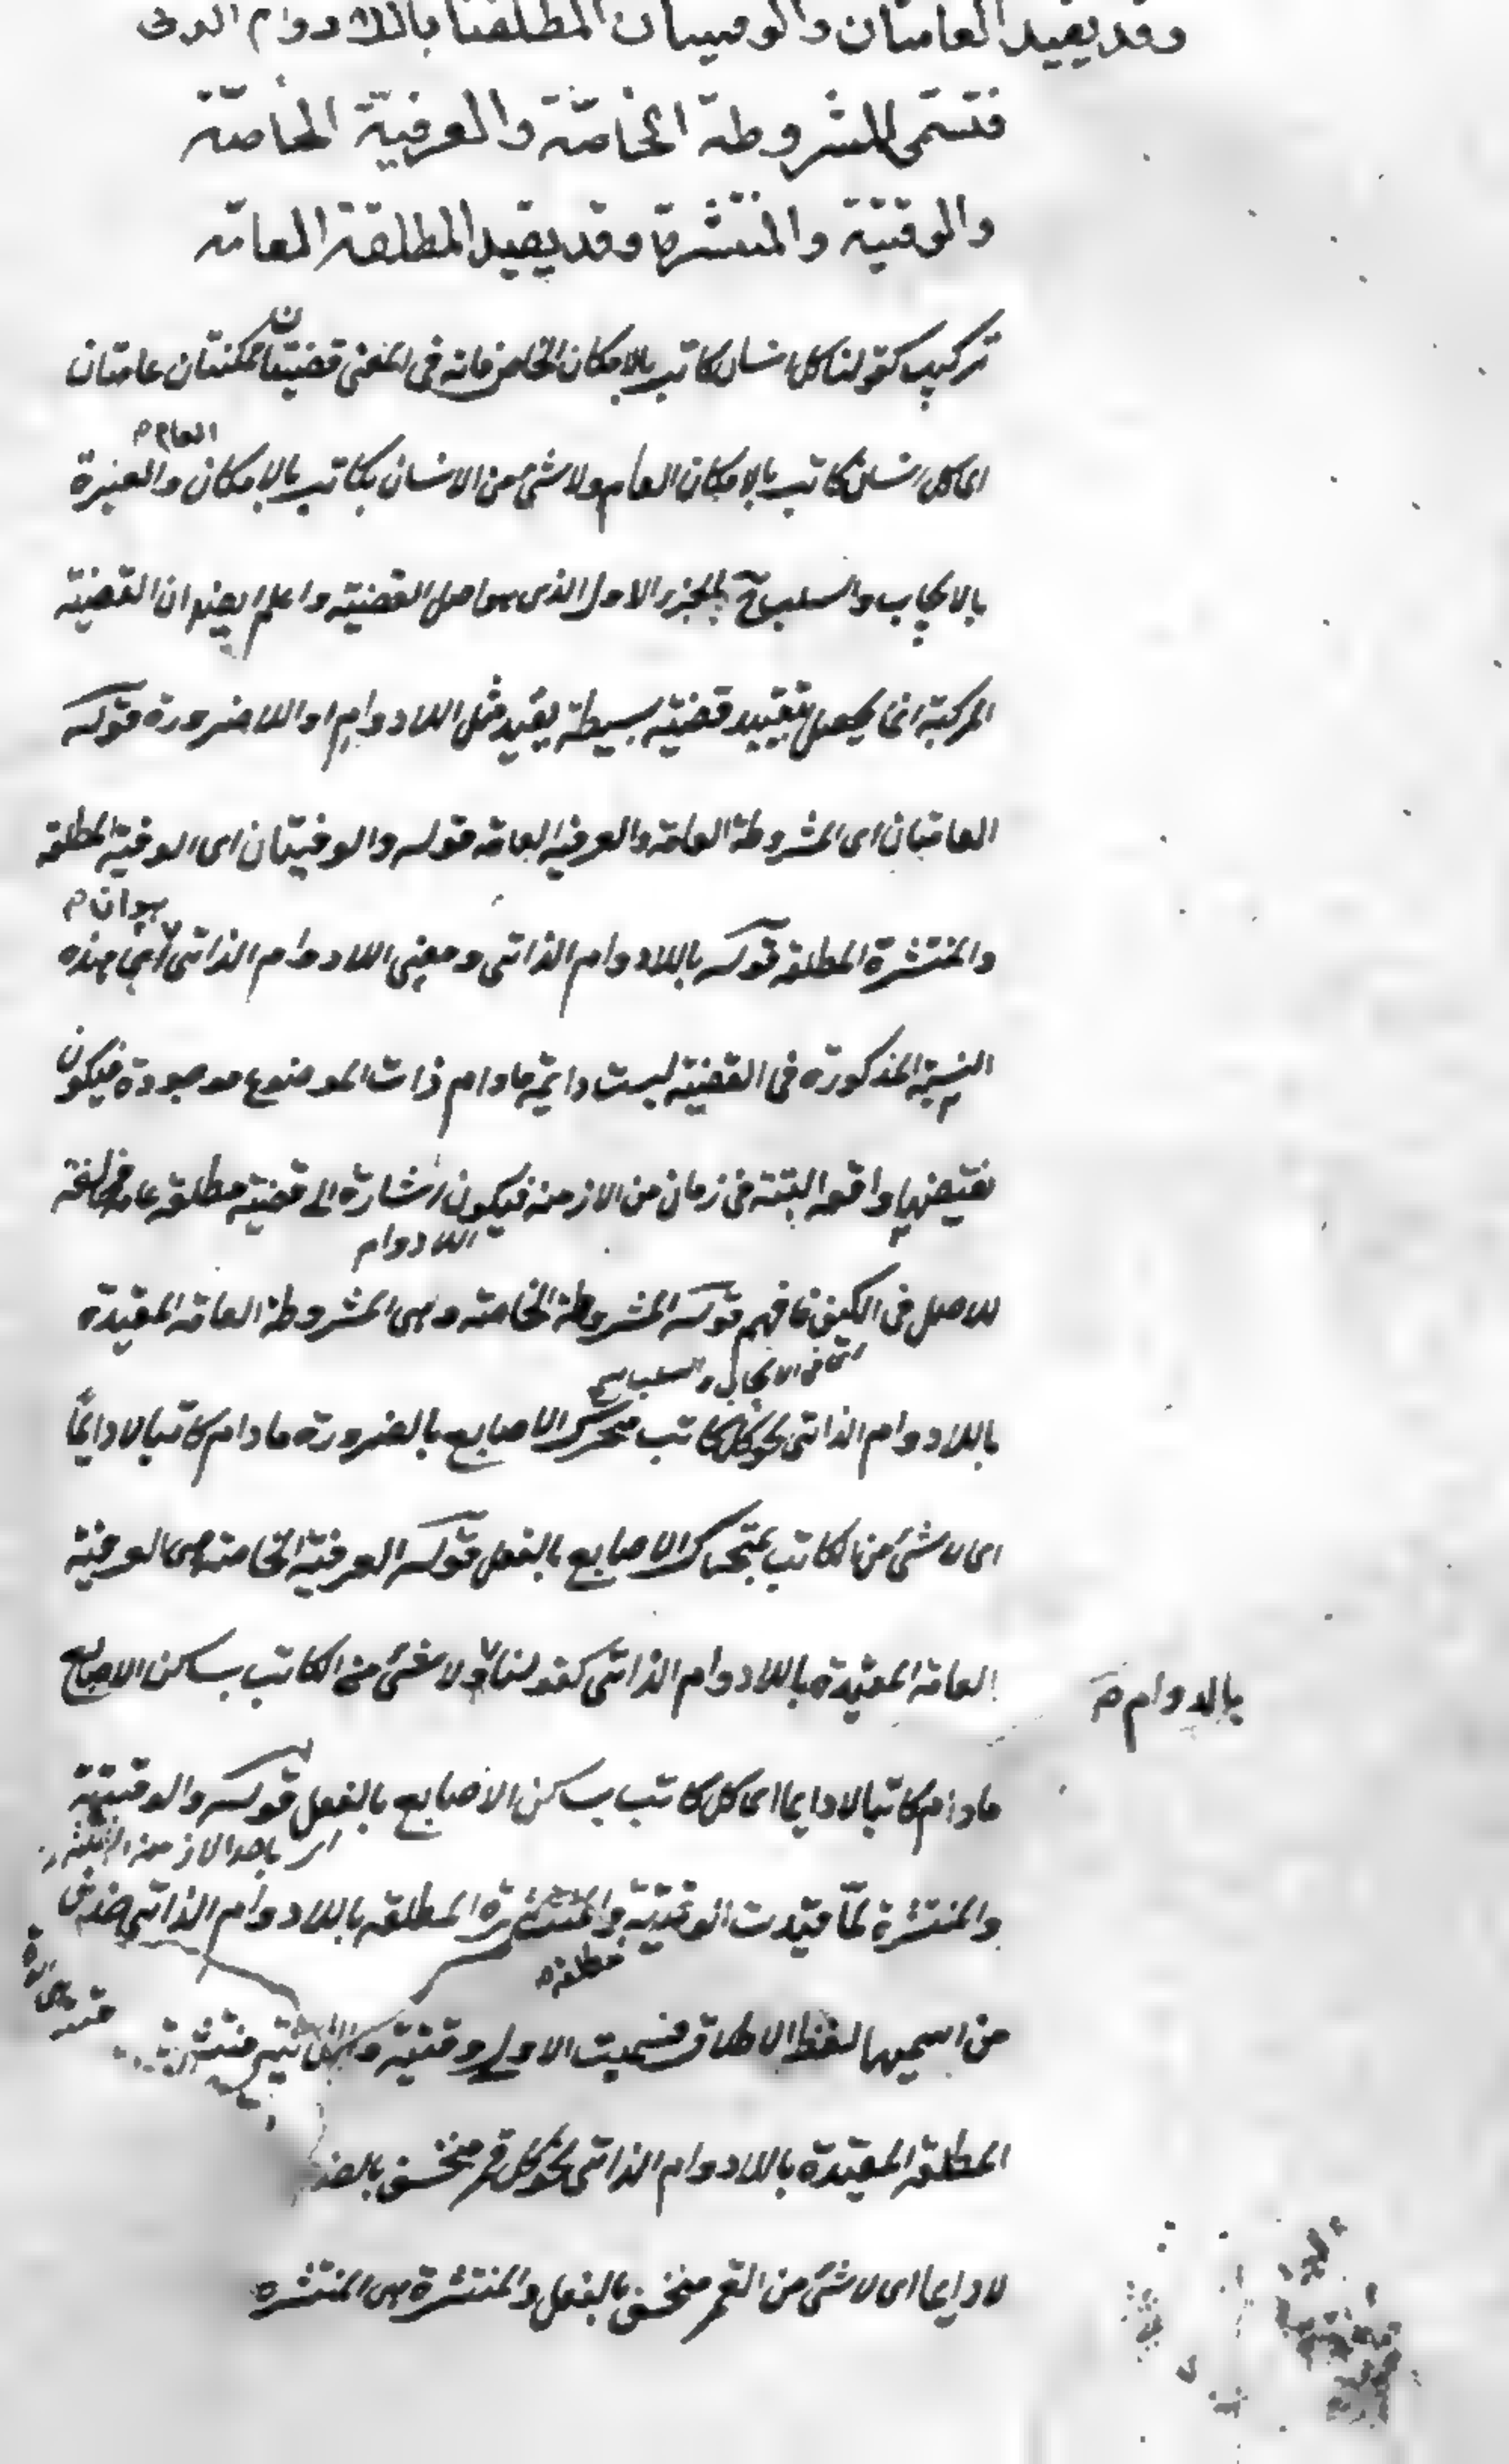 وقد يقيد العامتان والوقتيتان المطلقتا باللادوام الذاتى
فتسمى المشروطة الخاصة والعرفية الخاصة
والوقتية والمنتشرة وقد يقيد المطلقة العامة
تركيب كقولنا كل انسان كاتب بالامكان الخاص فانه فى المعنى قضيتان ممكنتان عامتان
اى كل انسان كاتب بالامكان العام ولا شئ من الانسان بكاتب بالامكان العام والعبرة
بالايجاب والسلب ح بالجزء الاول الذى هو اصل القضية واعلم ايضا ان القضية
المركبة انما يحصل بتقييد قضية بسيطة بقيد مثل اللادوام او اللاضرورة قوله
العامتان اى المشروطة العامة والعرفية العامة قوله والوقتيتان اى الوقتية المطلقة
والمنتشرة المطلقة قوله باللادوام الذاتى ومعنى اللادوام الذاتى هو ان هذه
النسبة المذكورة فى القضية ليست دايمة مادام ذات الموضوع موجودة فيكون
نقيضها واقعه البتة فى زمان من الازمنة فيكون اشارة الى قضية مطلقة عامة مخالفة
اللادوام
للاصل فى الكيف فافهم قوله المشروطة الخاصة وهى المشروطة العامة المقيدة
اى فى الايجاب والسلب
باللادوام الذاتى نحو كل كاتب متحرك الاصابع بالضرورة مادام كاتبا لا دايمًا
اى لا شئ من الكاتب بمتحرك الاصابع بالفعل قوله العرفية الخاصة هى العرفية
العامة المقيدة باللادوام الذاتى كقولنا لا شئ من الكاتب بساكن الاصابع
بالدوام صح
مادام كاتبا لا دايما اى كل كاتب ساكن الاصابع بالفعل قوله والوقتية
اى باحد الازمنة الثلثة
والمنتشرة لمّا قيدت الوقتية والمنتشرة المطلقة باللادوام الذاتى حذف
مطلقة
من اسميهما لفظ الاطلاق فسميت الاولى وقتية والثانية منتشرة
المطلقة المقيدة باللادوام الذاتى نحو كل قمر منخسف
لا دايما اى لا شئ من القمر منخسف بالفعل والمنتشرة هى المنتشرة